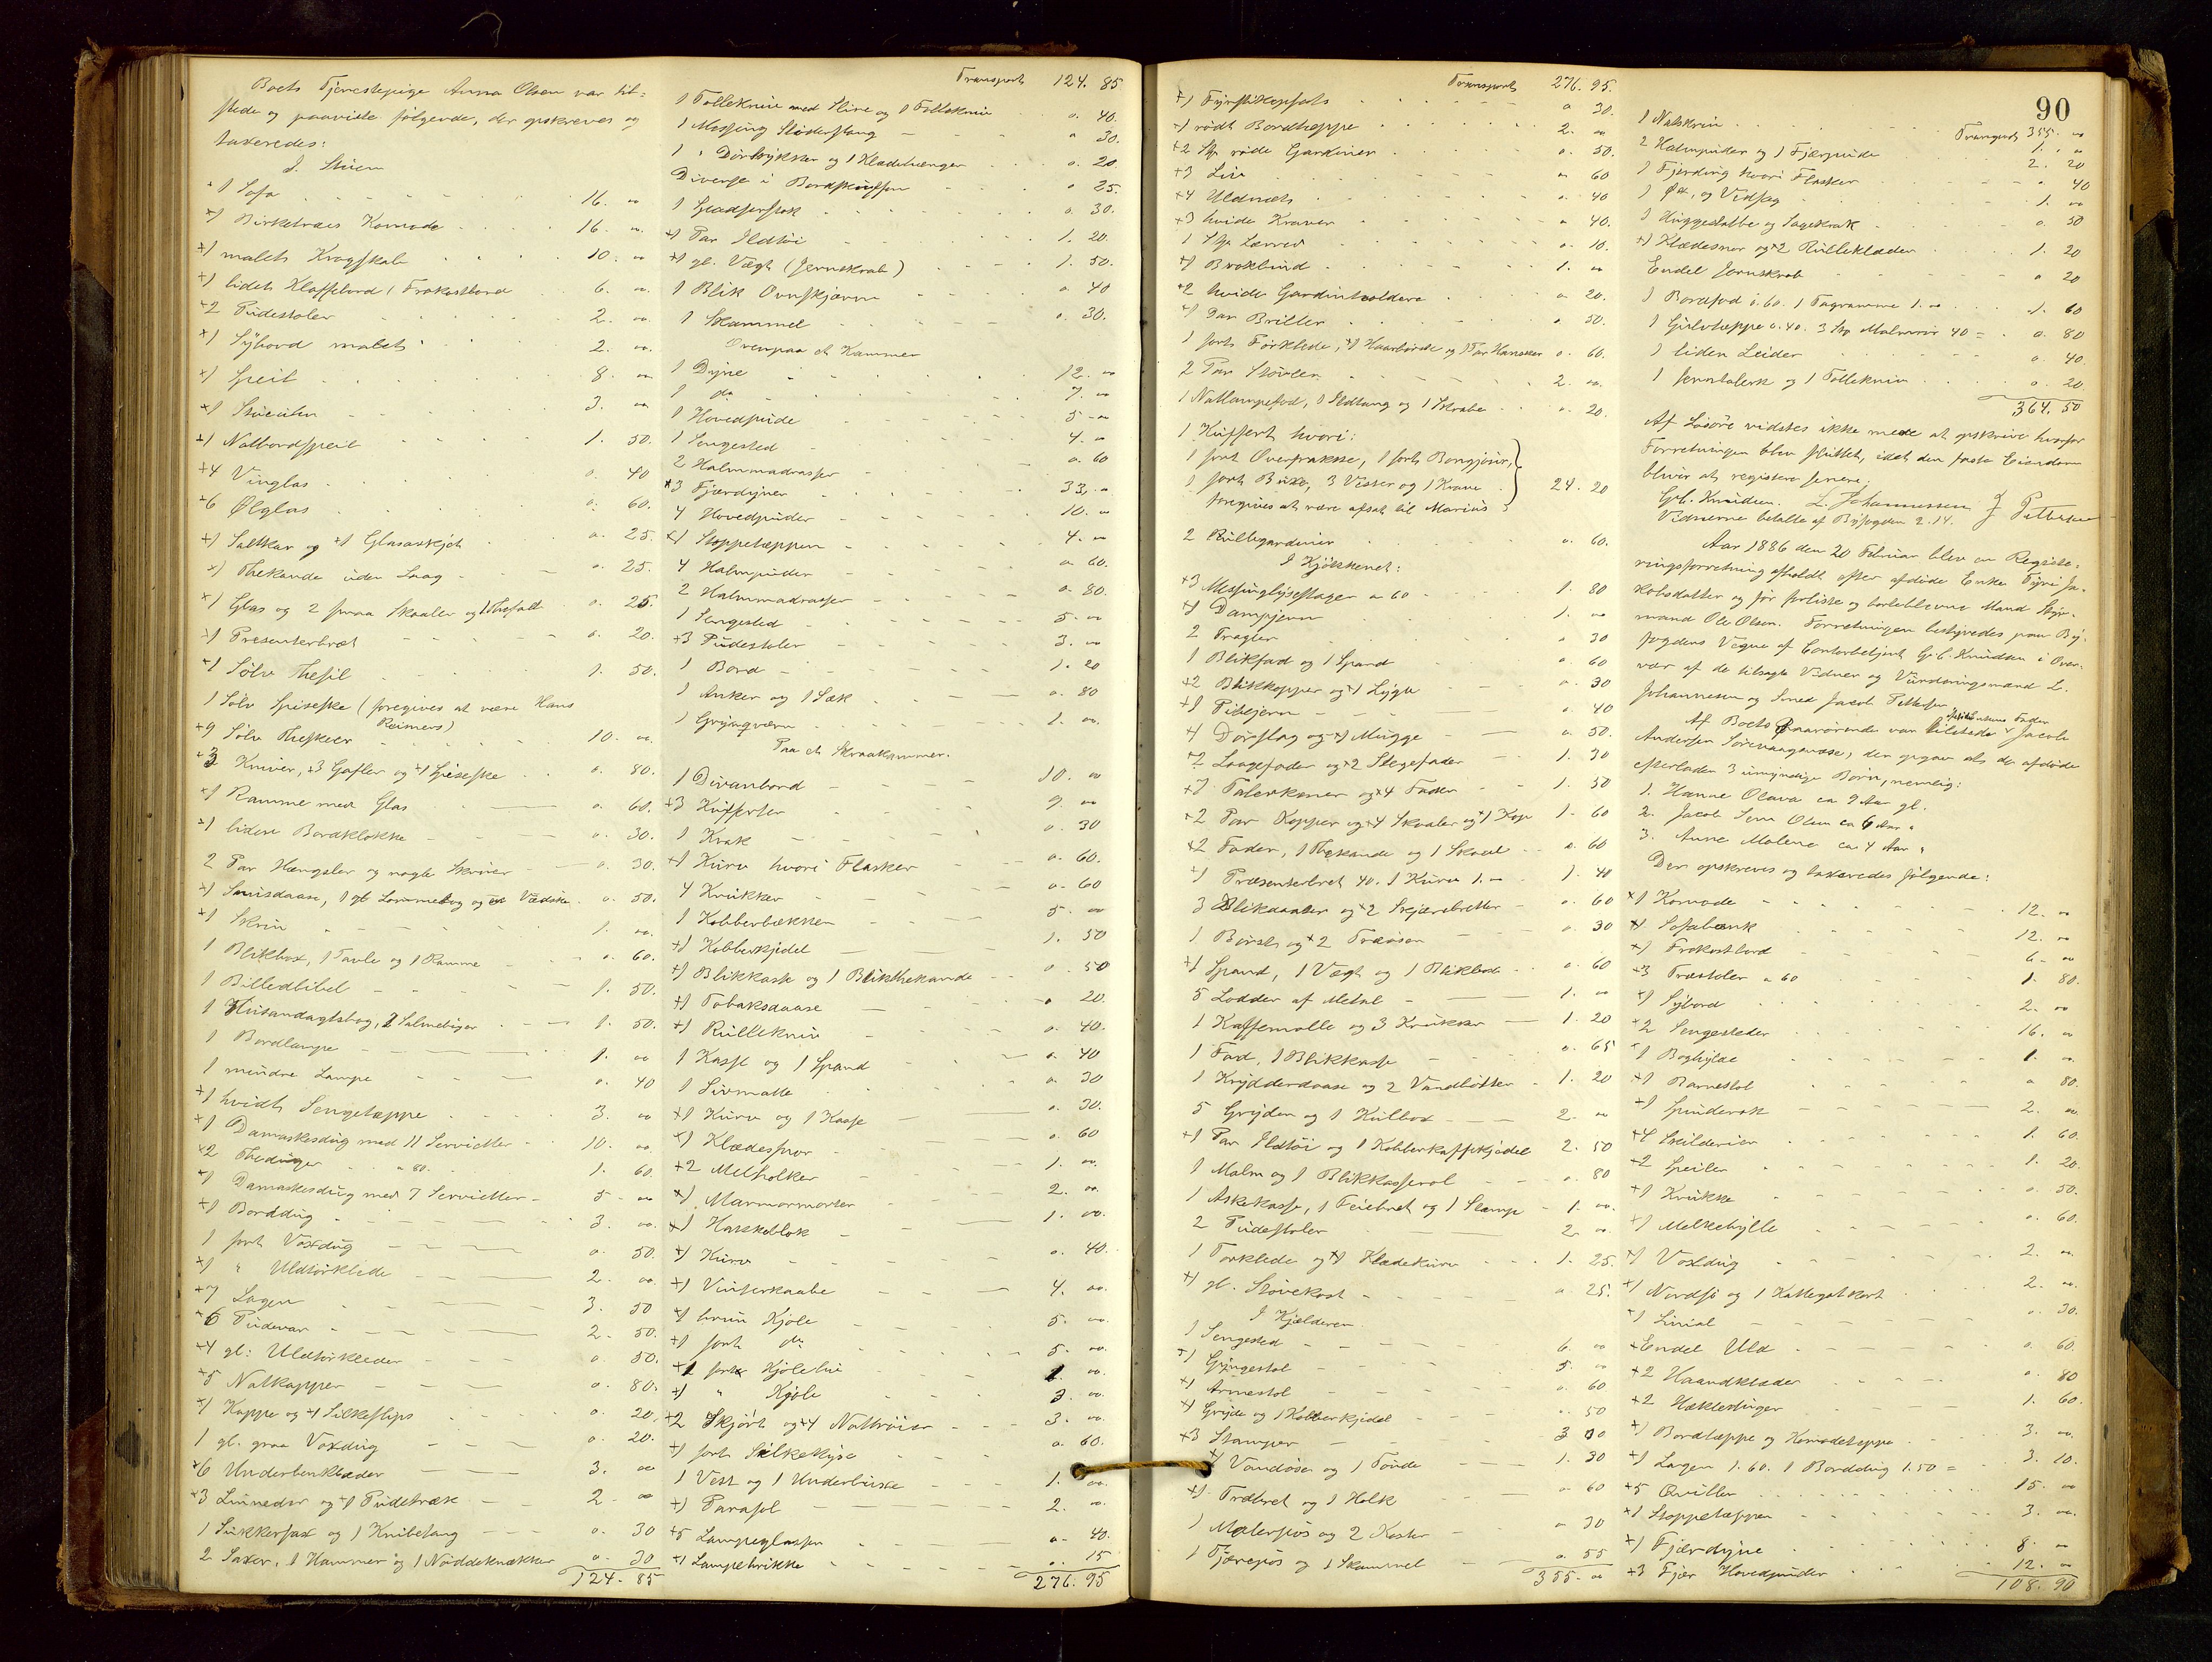 Boets Tjenestepige Anna Olsen var til=
stede og paaviste følgende, der opskreves og
taxeredes:
I Stuen
+1 Sofa 16. "
+1 Birketræes Komode 16. "
+1 malet Krogskab 10. "
+1 lidet Klapbord / Frokostbord 6. "
+2 Pudestoler 2. "
+1 Sybord malet 2. "
+1 Speil 8. "
+1 Stueuhr 3. "
+1 Natbordspeil 1. 50.
+4 Vinglas o. 40
+6 Ølglas o. 60.
+1 Saltkar og +1 Glasaskjet o. 25.
+1 Thekande uden Laag o. 25.
+1 Glas og 2 smaa Skaaler og 1 Thefad o. 25.
+1 Presenterbret o. 20.
+1 Sølv Thesil 1. 50.
1 Sølv Spiseske (foregives at være Hans
Reimers)
+9 Sølv Theskeer 10. "
+3 Kniver, +3 Gafler og +1 Spiseske o. 80.
+1 Ramme med Glas o. 60.
+1 liden Bordklokke o. 30.
2 Par Hængsler og nogle Skruer o. 30.
+1 Snusdaase, 1 gl Lommebog og en Vædske o. 50.
+1 Skrin 1. "
1 Blikbox, 1 Tavle og 1 Ramme o. 60.
1 Billedbibel 1. 50.
1 Husandagtsbog, 2 Salmebøger 1. 50.
1 Bordlampe 1. "
1 mindre Lampe o. 40
+1 hvidt Sengetæppe 3. "
+1 Damaskesdug med 11 Servietter 10. "
+2 Theduger a 80. 1. 60.
+1 Damaskesdug med 7 Servietter 5 - "
+1 Borddug 3. "
1 sort Voxdug o. 50.
+1 " Uldtørklæde 2. "
+7 Lagen 3. 50
+6 Pudevar 2. 50.
+4 gl: Uldtørklæder o. 50.
+5 Natkapper o. 80.
+1 Kappe og +1 Silkeslips o. 20.
1 gl. graa Voxdug o. 20.
+6 Underbenklæder 3. "
+3 Linneder og +1 Pudetræk 2. "
1 Sukkersax og 1 Knibetang o. 30
2 Saxer, 1 Hammer og 1 Nøddeknækker o. 30
124. 85
Transport 124. 85
1 Tollekniv med Slire og 1 Tollekniv o. 40.
1 Messing Støderstang o. 30.
1 " Dørtrykker og 1 Klædehænger o. 20
Diverse i Bordskuffen o. 25.
1 Spadserstok o. 30.
+1 Par Ildtøi 1. 20.
+1 gl. Vægt (Jernskrab) 1. 50.
1 Blik Ovnskjærm o. 40
1 Skammel o. 30.
Ovenpaa et Kammer
1 Dyne 12. "
1 do 7. "
1 Hovedpude 5 - "
1 Sengested 4. "
2 Halmmadrasser o. 60
*3 Fjærdyner 33. "
4 Hovedpuder 10. "
+1 Stoppetæppen 4. "
4 Halmpuder o. 60.
2 Halmmadrasser o. 80.
1 Sengested 5. "
+3 Pudestoler 3. "
1 Bord 1. 20
1 Anker og 1 Sæk o. 80
1 Grynqværn 1. "
Paa et Skraakammer.
1 Divanbord 10. "
+3 Kufferter 9. "
1 Krak o. 30
+1 Kurv hvori Flasker o. 60.
4 Krukker o. 60
1 Kobberbækken 5. "
+1 Kobberkjedel 1. 50
+1 Blikkasse og 1 Blikthekande o. 50
+1 Tobaksdaase o. 20.
+1 Rullekniv o. 40.
1 Kasse og 1 Spand o. 40
1 Sivmatte o. 30
+1 Kurv og 1 Kasse o. 30.
+1 Klædessnor o. 60
+2 Melholker 1. "
+1 Marmormorter 2. "
+1 Hakkeblok 1. "
+1 Kurv o. 40.
+1 Vinterkaabe 4. "
+1 brun Kjole 5. "
+1 sort do 5. "
+1 sort Kjoleliv 1. "
+1 " Kjole 3. "
+2 Skjørt og +4 Nattrøier 3. "
+1 sort Silkekyse o. 60.
1 Vest og 1 Underbuxe 1. "
+1 Parasol 2. "
+5 Lampeglasser o. 40.
+1 Lampetrikke o. 15
276. 95
Transport 276. 95.
+1 Fyrstikopsats o. 30.
+1 rødt Bordtæppe 2. "
+2 Stk røde Gardiner o. 50.
+3 Liv o. 60
+4 Uldnæts o. 40
+3 hvide Kraver o. 40.
1 Stk Lærred o. 10.
+1 Brokbind 1. "
+2 hvide Gardinholdere o. 20.
+1 Par Briller o. 50.
1 sort Forklæde, +1 Haarbørste og 1 Par Hansker o. 60.
2 Par Støvler 2. "
1 Natlampefod, 1 Ildtang og 1 Skrabe o. 20.
1 Kuffert hvori:
1 sort Overfrakke, 1 sort Bonjour,
1 sort Buxe, 3 Vester og 1 Krave 24. 20
foregives at være afsat til Marius
2 Rullegardiner o. 60.
I Kjøkkenet:
+3 Messinglysestager a 60 1. 80
+1 Dampjern 1. "
2 Tragter o. 30
1 Blikfad og 1 Spand o. 60
+2 Blikkopper og +1 Lygte o. 30
+1 Pibejern o. 40
+1 Dørslag og +1 Mugge o. 50.
+2 Laagefader og +2 Stegefader 1. 30
+7 Talerkener og +4 Fader 1. 50
+2 Par Kopper og +4 Skaaler og +1 Kop 1. 60
+2 Fader, 1 Thekande og 1 Skaal o. 60
+1 Præsenterbret 40. 1 Kurv 1. " 1. 40
3 Blikdaaser og +2 Skjærebretter o. 60
1 Børste og +2 Træøser o. 30
+1 Spand, 1 Vægt og 1 Blikbøtte o. 60
5 Lodder af Metal 1. "
1 Kaffemølle og 3 Krukker 1. 20
1 Fad, 1 Blikkasse o. 65
1 Krydderdaase og 2 Vandbøtter 1. 20
5 Gryder og 1 Kulbox 2. "
+1 Par Ildtøi og 1 Kobberkaffekjedel 2. 50
1 Malm og 1 Blikkasserol o. 80
1 Askekasse, 1 Feiebret og 1 Stamp 1. "
2 Pudestoler 2. "
1 Forklæde og +1 Klædekurv 1. 25.
+1 gl. Støvekost o. 25.
I Kjælderen.
1 Sengested 6. "
+1 Gyngestol 5. "
+1 Armestol o. 60
+1 Gryde og 1 Kobberkjedel o. 50
+3 Stamper 3 00
+1 Vandøse og 1 Tønde 1. 30
+1 Træbret og 1 Holk o. 60
1 Malerpøs og 2 Koster o. 30
1 Tjærepøs og 1 Skammel o. 55
355. "
90
Transport 355. "
1 Natskrin 1. "
2 Halmpuder og 1 Fjærpude 2. 20
1 Fjerding hvori Flasker o. 40
1 Øx, og Vedsag 1. "
1 Huggestabbe og Sagekrak o. 50
+1 Klædessnor og +2 Rulleklæder 1. 20
Endel Jernskrab o. 20
1 Bordfod o. 60. 1 Tagramme 1. " 1. 60
1 Gulvtæppe o. 40. 3 Stk Malmrør 40 = o. 80
1 liden Leider o. 40
1 Jerntalerk og 1 Tollekniv o. 20.
364. 50
Af Løsøre vidstes ikke mere at opskrive hvorfor
Forretningen blev sluttet, idet den faste Eiendom
bliver at registere senere.
G. C. Knudsen. L. Johannessen J Pettersen
Vidnerne betalte af Byfogden 2. 14.
Aar 1886 den 20 Februar blev en Registe=
ringsforretning afholdt efter afdøde Enke Tyri Ja=
kobsdatter og før forliste og bortblevne Mand Styr=
mand Ole Olsen. Forretningen bestyredes paa By=
fogdens Vegne af Contorbetjent G. C. Knudsen i Over=
vær af de tilsagte Vidner og Vurderingsmænd L.
Johannessen og Smed Jacob Pettersen
Af Boets Paarørende var tilstede afdødes Fader Jacob
Andersen Sørevaagenæse, der opgav at de afdøde
efterlader 3 umyndige Børn, nemlig:
1. Hanne Olava ca 9 Aar gl.
2. Jacob Senn Olsen ca 6 Aar "
3. Anne Malene ca 4 Aar "
Der opskreves og taxeredes følgende:
+1 Komode 12. "
+1 Sofabænk 12. "
+1 Frokostbord 6 - "
+3 Træstoler a 60 1. 80.
+1 Sybord 2. "
+2 Sengesteder 16. "
+1 Boghylde 1. "
+1 Barnestol o. 80.
+1 Spinderok 2. "
+4 Skilderier 1. 60.
+2 Speiler 1. 20.
+1 Krukke o. 50.
+1 Melkehylle o. 60.
+1 Voxdug 2. "
+1 Nordsø og 1 Kattegatkort 2. "
+1 Linial o. 30.
+Endel Uld o. 60.
+2 Haandklæder o. 80
+2 Hækleduger 1. 60.
+1 Bordtæppe og Komodetæppe 3. "
+1 Lagen 1. 60. 1 Borddug 1. 50 = 3. 10.
+5 Qvilter 15. "
+1 Stoppetæppen 3. "
+1 Fjærdyne 8. "
+3 Fjær Hovedpuder 12. "
108. 90